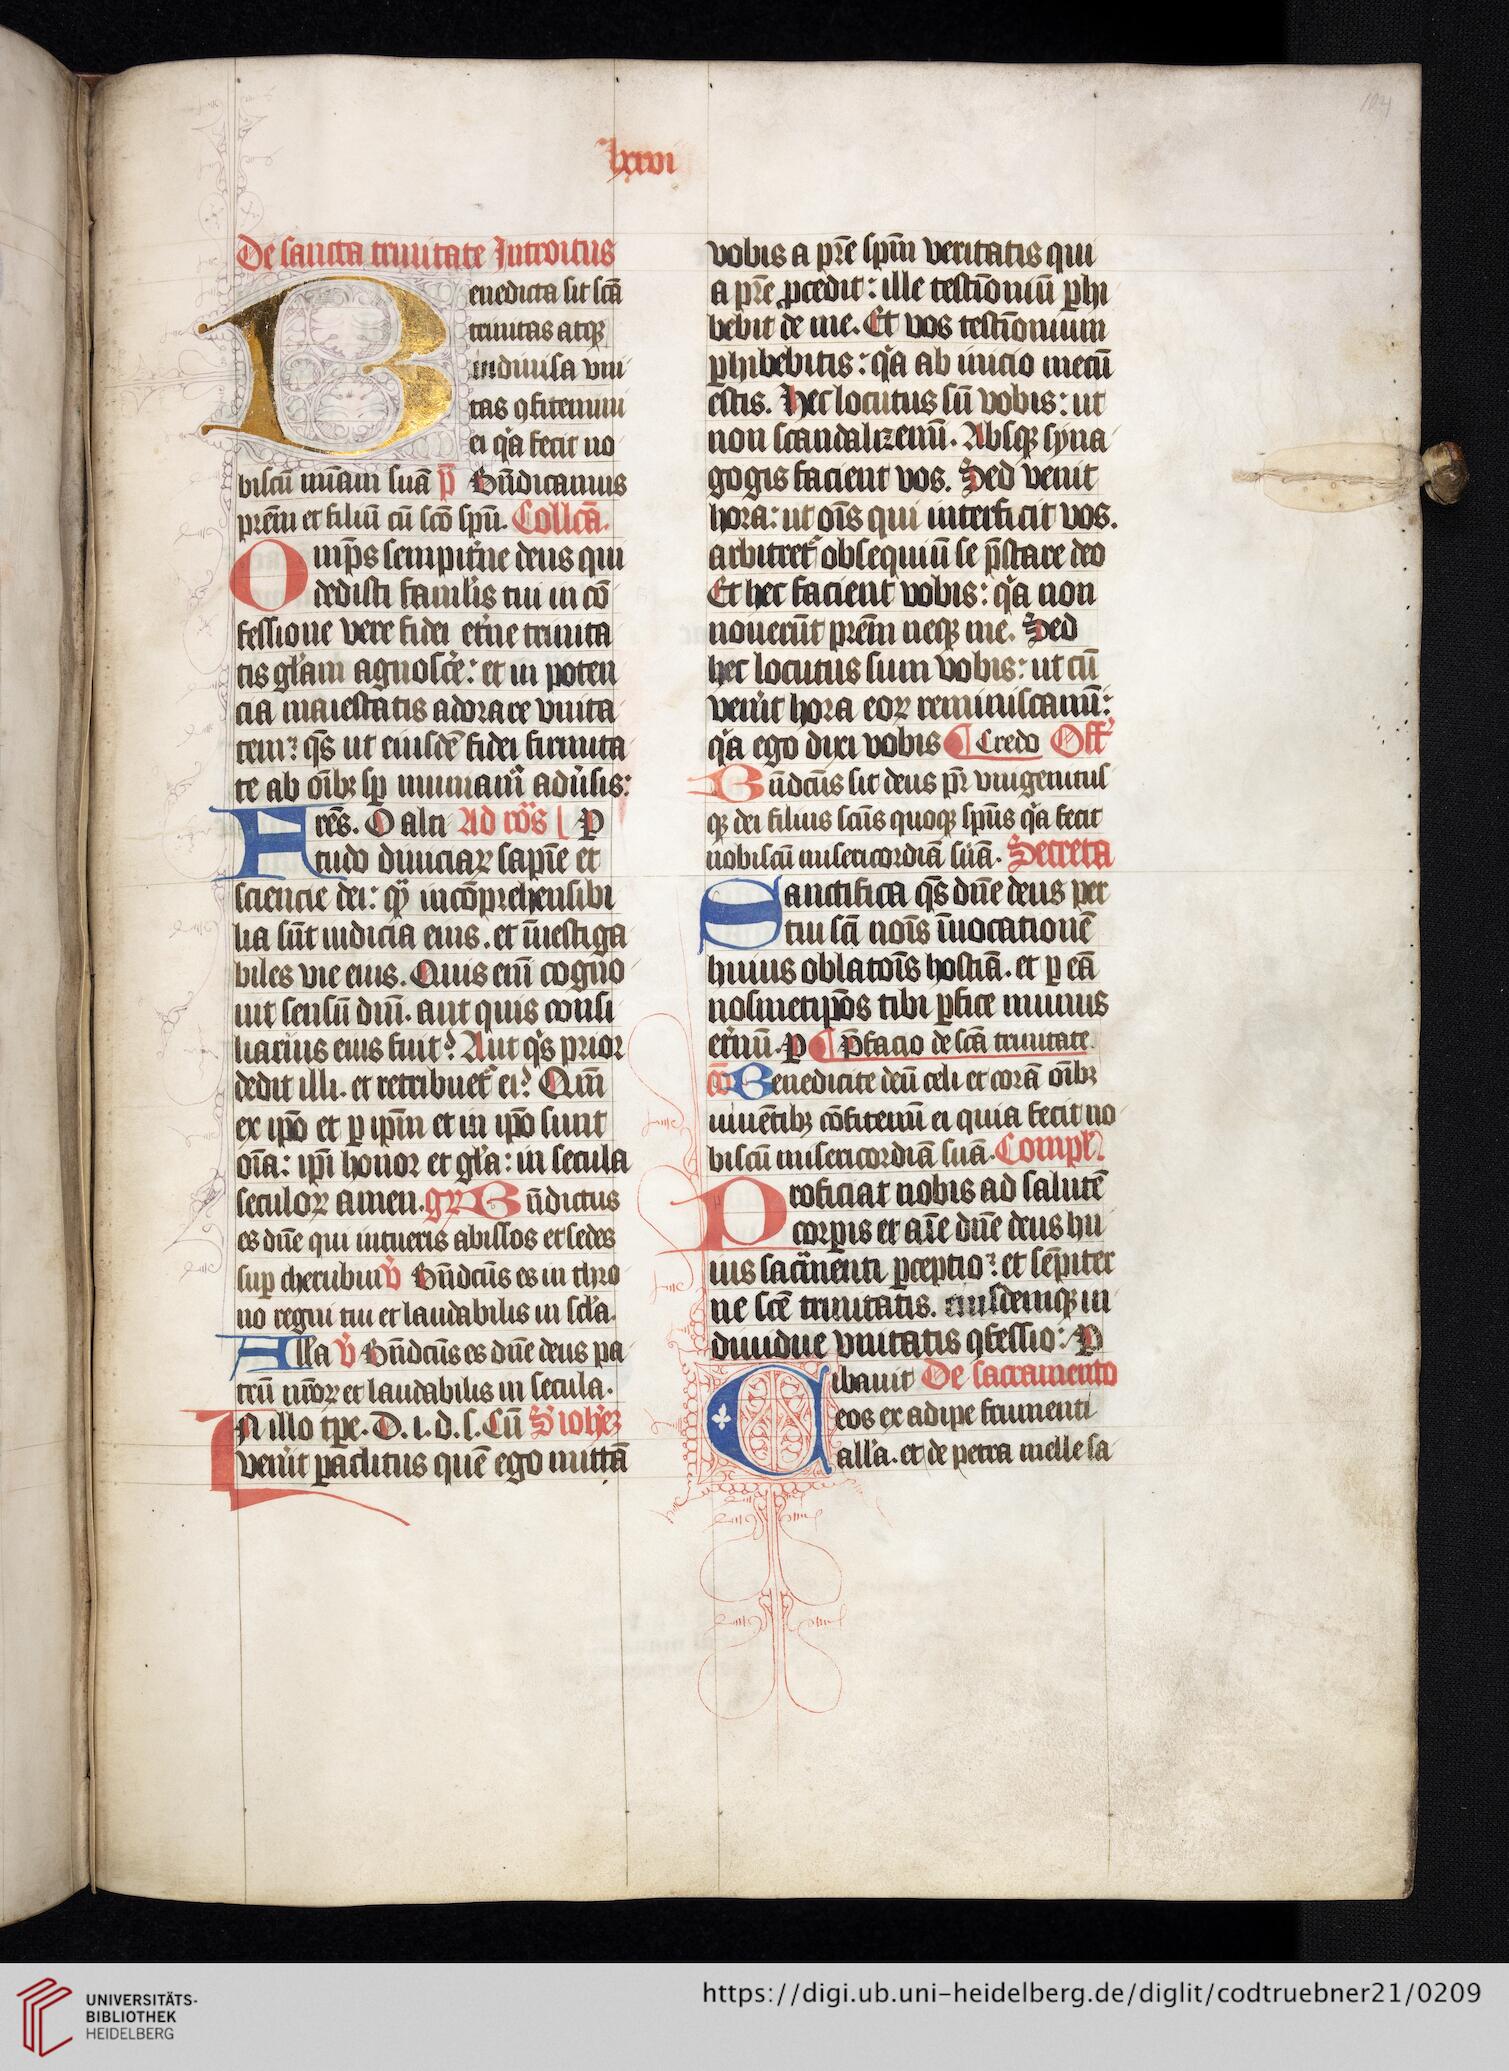 lxxvi
De sancta trinitate Introitus
Benedicta sit scā
trinitas atqꝫ
indiuisa vni
tas ꝯfitemini
ei q̇a fecit no
biscū mīam suā p̄ Bn̄dicamus
prēm et filiū cū scō spū. Collcā.
Omīps sempitn̄e deus qui
dedisti famlis̓ tui in cō
fessione vere fidei etn̓e trinita
tis gl̓am agnosce̓: et in poten
cia maiestatis adorare vnita
tem: qs̄ ut eiusdē fidei firmita
te ab oībꝫ sp̄ muniam̓ adu̓sis:
Fres̄. O alti Ad ro̓s P
titudo diuiciaꝝ sapīe et
sciencie dei: qͣ incōprehensibi
lia sūt iudicia eius. et īuestiga
biles vie eius. Quis enī cogno
uit sensū dnī. aut quis consi
liarius eius fuit? Aut qͥs prior
dedit illi. et retribuet̓ ei? Qm̄
ex ipō et ꝑ ipm̄ et in ipō sunt
oīa: ipī honor et gl̓a: in secula
seculoꝝ amen. gr̄ Bn̄dictus
es dn̄e qui intueris abissos et sedes
suꝑ cherubin v̓ Bn̄dcūs es in thro
no regni tui et laudabilis in scl̓a.
Alla v̓ Bn̄dcūs es dn̄e deus pa
trū nr̄oꝝ et laudabilis in secula.
IN illo tpe. D. i. d. s. Cū S̓ ioheꝫ
venit̓ paclitus quē ego mittā
vobis a prē spm̄ veritatis qui
a prē ꝓcedit: ille testīoniū ꝑhi
bebit de me. Et vos testīonium
ꝑhibebitis: q̇a ab inicio mecū
estis. Hec locutus sū vobis: ut
non scandalizemī. Absqꝫ syna
gogis facient vos. Sed venit
hora: ut oīs qui interficit vos.
arbitret̓ obsequiū se p̄stare deo
Et hec facient vobis: q̇a non
nouerūt prēm neqꝫ me. Sed
hec locutus sum vobis: ut cū
venit̓ hora eoꝝ reminiscamī:
q̇a ego dixi vobis ¶ Credo Off̓
Bn̄dcūs sit deus pr̄ vnigenitus
qꝫ dei filius scūs quoqꝫ spūs q̇a fecit
nobiscū misericordiā suā. Secreta
Sanctifica qs̄ dn̄e deus per
tui scī noīs īuocationē
huius oblatoīs hostiā. et ꝑ eā
nosmetipōs tibi ꝑfice munus
etn̓ū. P ¶ P̄facio de scā trinitate
cō Benedicite deū celi et corā oībꝫ
uiuētibꝫ cōfitemī ei quia fecit no
biscū misericordiā suā. Compl̓
Proficiat nobis ad salutē
corꝑis et aīe dn̄e deus hu
ius sacͣmenti ꝑceptio: et sēpiter
ne scē trinitatis. eiusdemqꝫ in
diuidue vnitatis ꝯfessio: P
Cibauit De sacramento
eos ex adipe frumenti
all̓a. et de petra melle sa
UNIVERSITÄTS-
BIBLIOTHEK
HEIDELBERG
https://digi.ub.uni-heidelberg.de/diglit/codtruebner21/0209